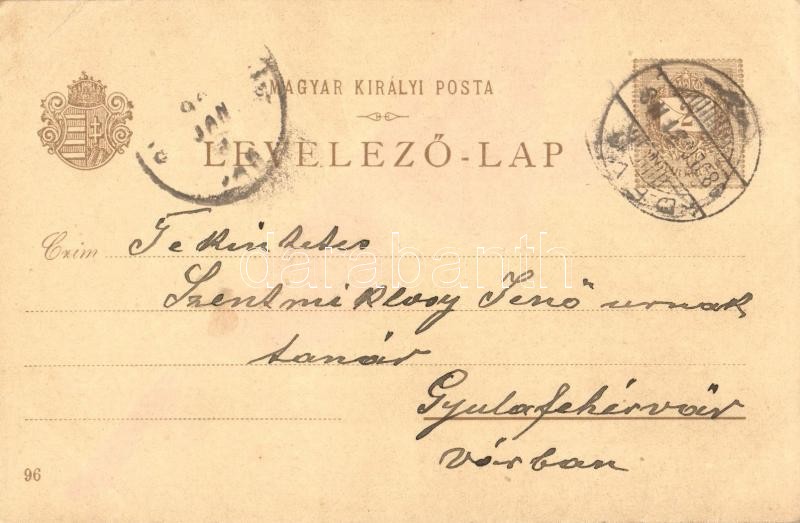 MAGYAR KIRÁLYI POSTA
LEVELEZŐ-LAP
JAN
2
Czim
Tekintetes
Szentmiklosy Jenő urnak
tanár
Gyulafehérvár
várban
96
darabanth